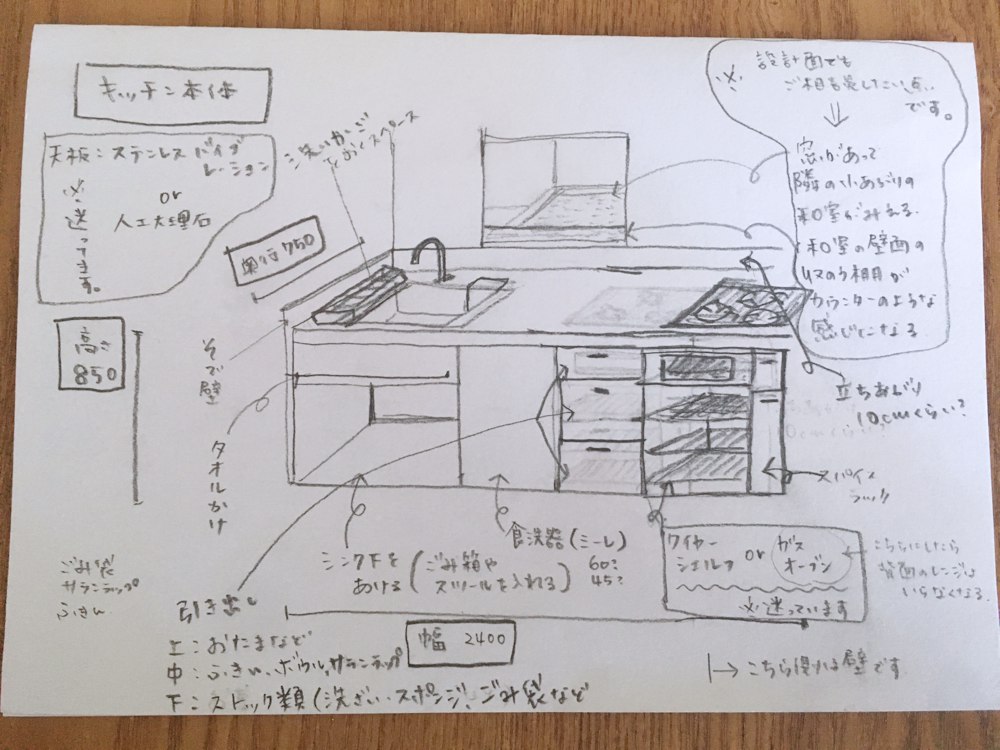 キッチン本体
天板：ステンレスバイブ
レーション
or
人工大理石
※送ってます。
洗いかご
をおくスペース
奥行750
高さ
850
そで壁
タオルかけ
※
設計面でも
ご相談したい点
です。
⇓
窓があって
隣の小あがりの
和室がみえる。
和室の壁面の
収のう棚が
カウンターのような
感じになる
立ちあがり
10cmくらい?
スパイス
ラック
食洗器(ミーレ)
60?
45?
シンク下を
あける
(ごみ箱や
スツールを入れる)
ワイヤー
シェルフ
or
ガス
オーブン
※迷っています
こちらにしたら
背面のレンジは
いらなくなる。
ごみ袋
サランラップ
ふきん
引き出し
上：おたまなど
中：ふきん、ボウル、サランラップ
下：ストック類(洗ざい、スポンジ、ごみ袋など
幅 2400
|→こちら側は壁です